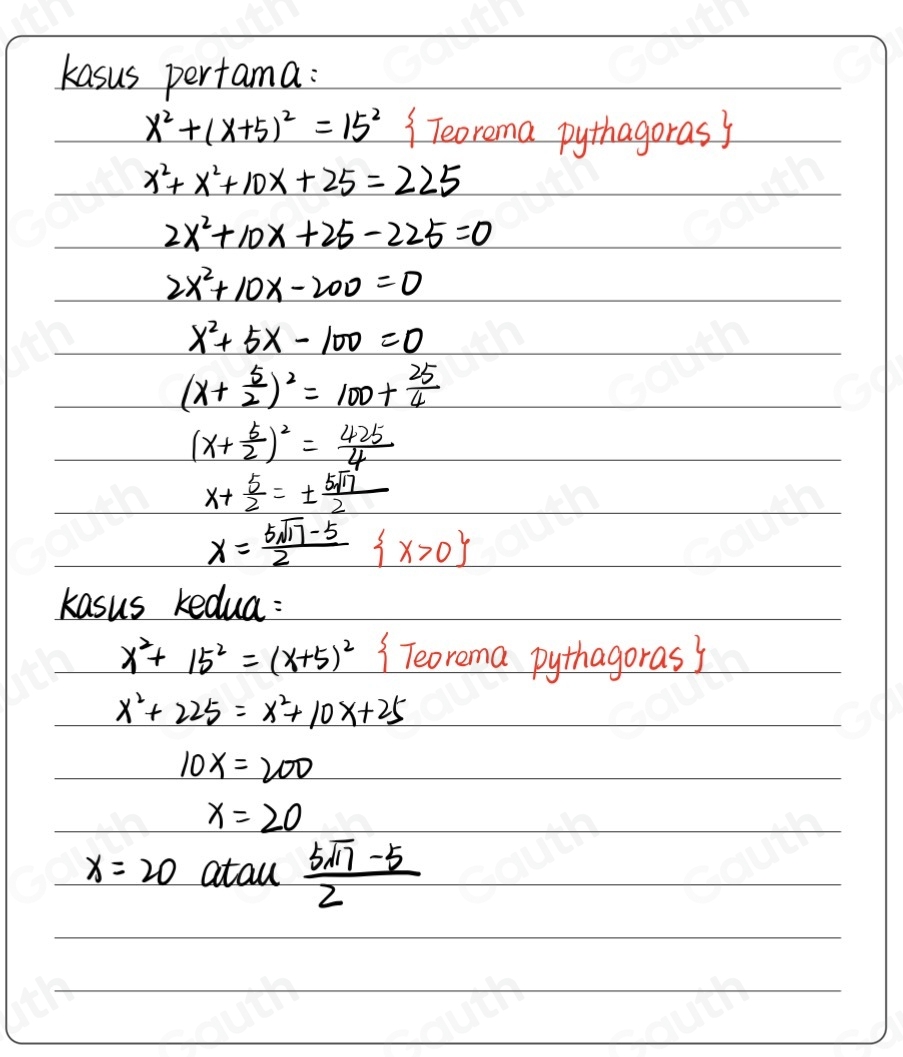 Kasus pertama:
x²+(x+5)² = 15² {Teorema pythagoras}
x²+x²+10x+25=225
2x²+10x+25-225=0
2x²+10x-200=0
x²+5x-100=0
(x+5/2)²=100+25/4
(x+5/2)²=425/4
x+5/2=±5√17/2
x=(5√17-5)/2 {x>0}
Kasus kedua:
x²+15²=(x+5)² {Teorema pythagoras}
x²+225=x²+10x+25
10x=200
x=20
x=20 atau (5√17-5)/2